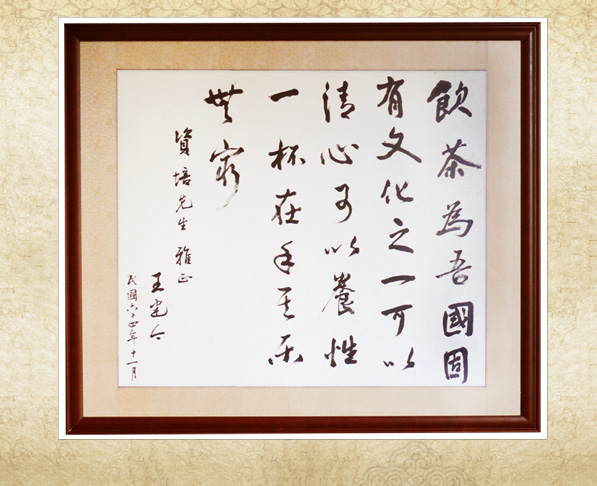 飲茶為吾國固
有文化之一可以
清心可以養性
一杯在手其樂
無窮
資培先生 雅正
王
民國六十四年十一月